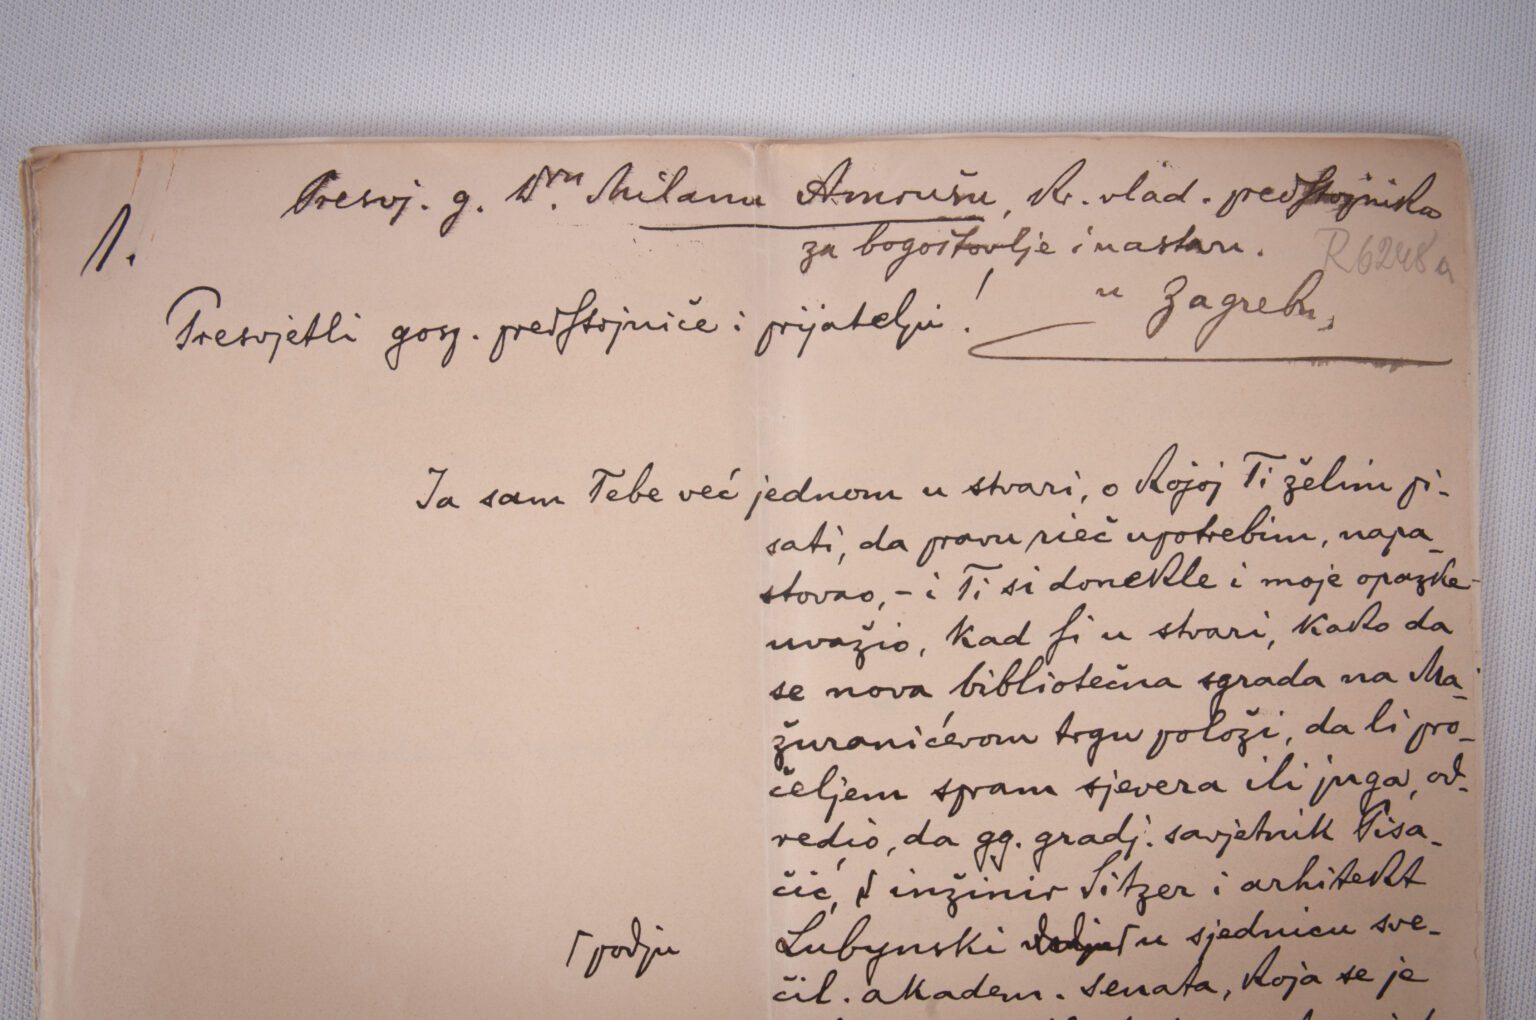 Presvj. g. Dru. Milanu Amrušu, kr. vlad. predstojniku
1.
za bogoštovlje i nastavu.
R6248a
u Zagrebu,
Presvjetli gosp. predstojniče i prijatelju!
Ja sam Tebe već jednom u stvari, o kojoj Ti želim pi-
sati, da pravu rieč upotrebim, napa-
stovao, - i Ti si donekle i moje opazke
uvažio, kad si u stvari, kako da
se nova bibliotečna sgrada na Ma-
žuranićevom trgu položi, da li pro-
čeljem spram sjevera ili juga, od-
redio, da gg. gradj. savjetnik Pisa-
čić, inžinir Sitzer i arhitekt
podju
Lubynski u sjednicu sve-
čil. akadem. senata, koja se je